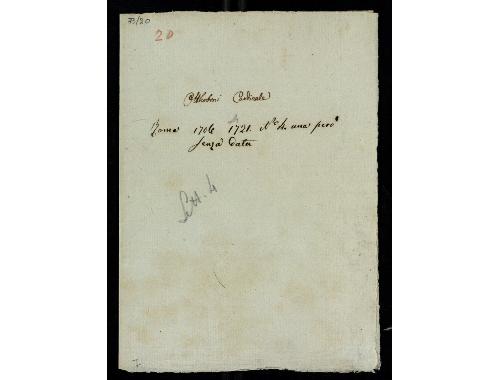 73/20
20
Alberoni Cardinale
Roma 1706 1721. N.º 4. una però
senza data
Lett. 4
7